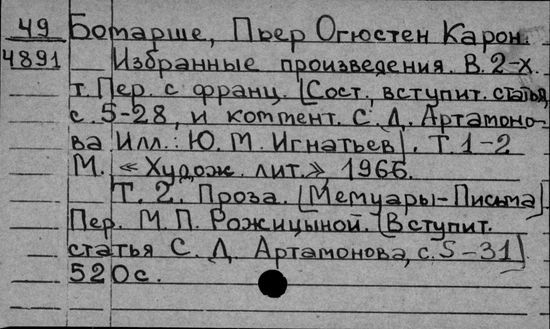 49 Бомарше, Пьер Огюстен Карон.
4891 Избранные произведения. В. 2-х.
т. Пер. с франц. [Сост., вступит. статья,
с. 5-28, и коммент. С. Д. Артамоно-
ва Илл.: Ю. М. Игнатьев]. Т. 1-2
М. «Худож. лит.», 1966.
Т. 2. Проза. [Мемуары-Письма]
Пер. М. П. Рожицыной. [Вступит.
статья С. Д. Артамонова, с. 5-31]
520 с.